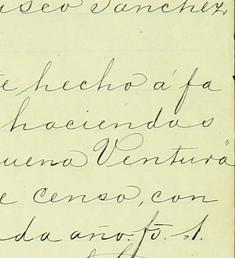 isco Sanchez,
te hecho á fa
haciendas
uena Ventura
e censo, con
da año. fo. 1.